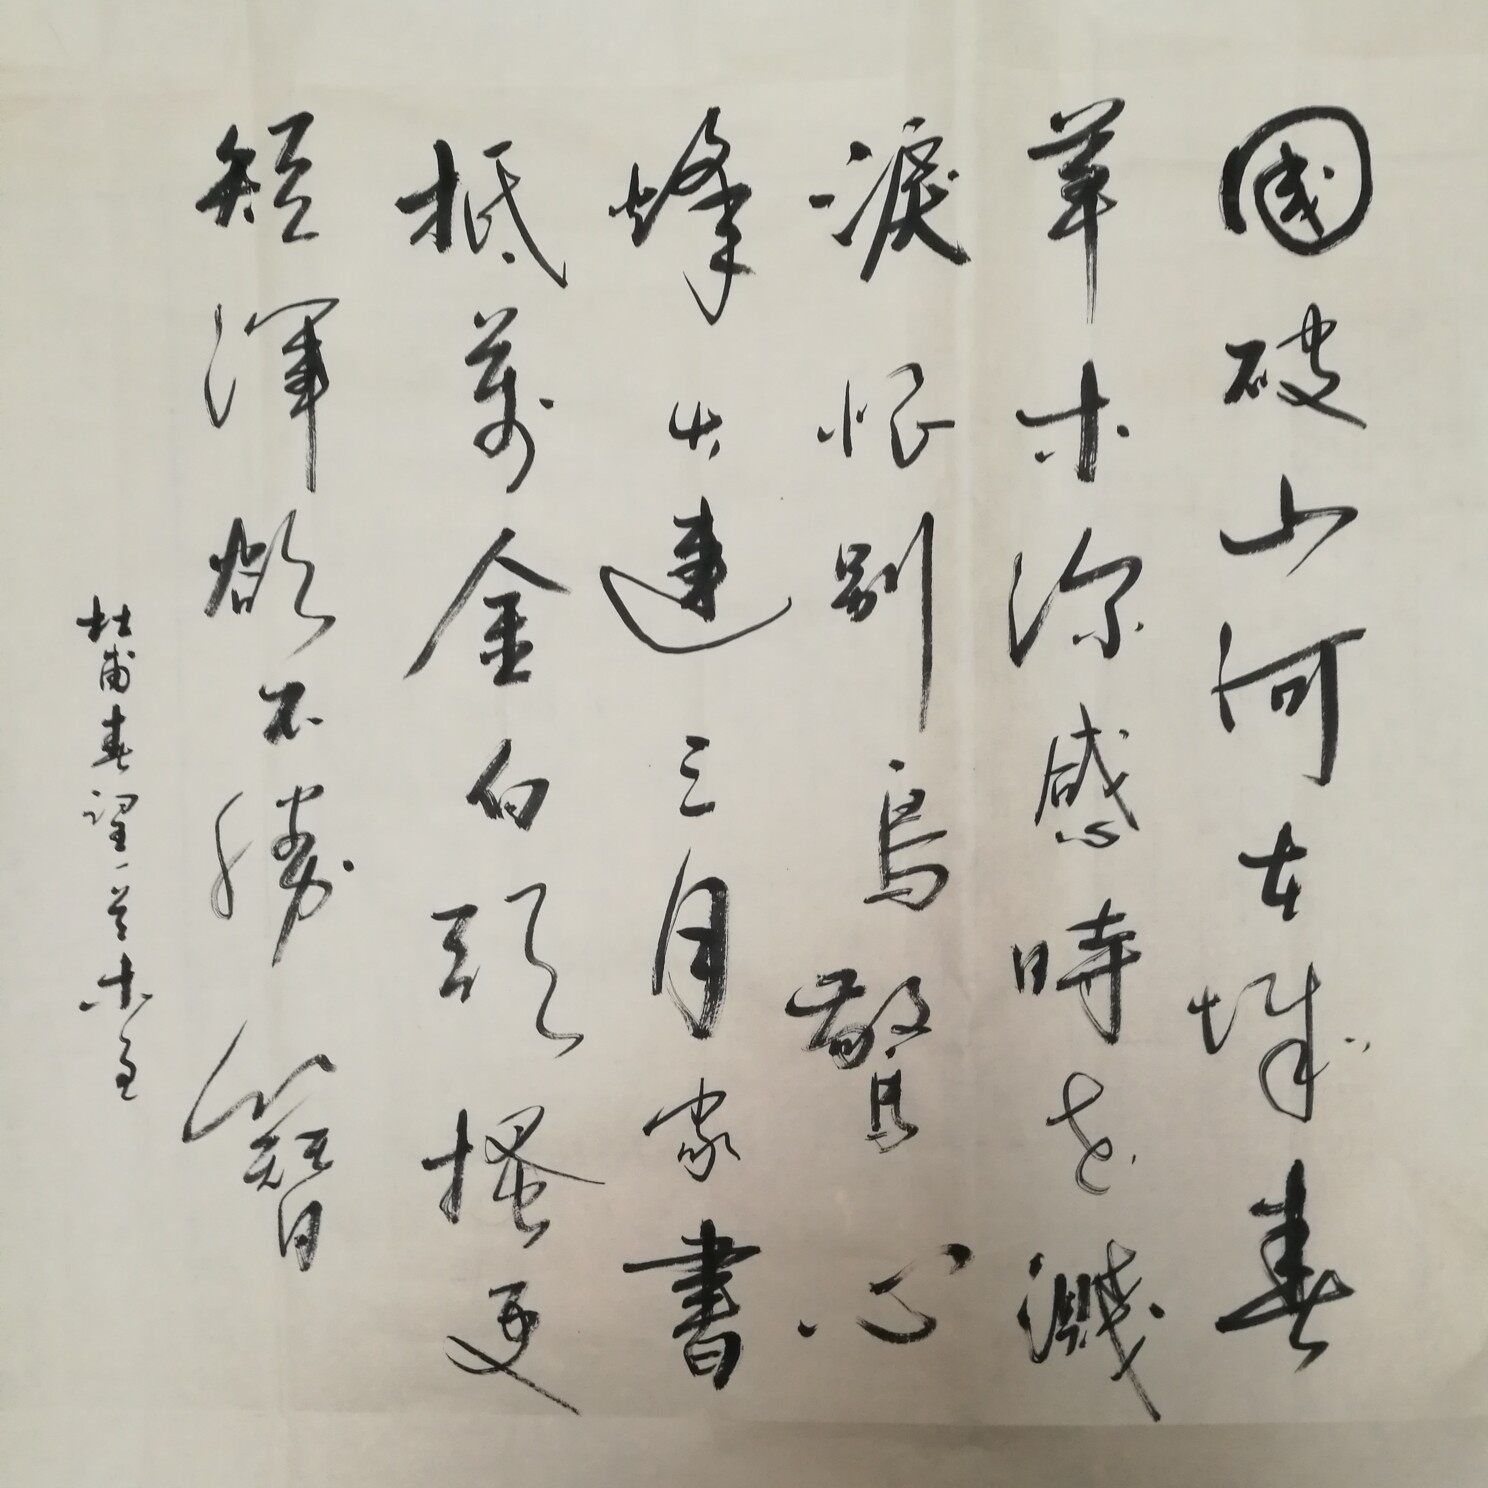 國破山河在城春
草木深感時花濺
淚恨別鳥驚心
烽火連三月家書
抵萬金白頭搔更
短渾欲不勝簪
杜甫春望一首木